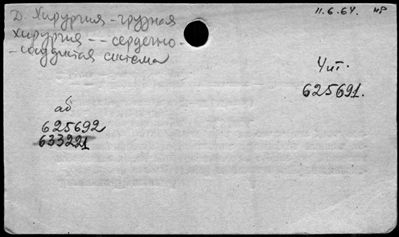 Д. Хирургия - грудная
11.6.64. нр
хирургия -- сердечно-
-сосудистая система
Чит.
625691.
аб
625692
633221